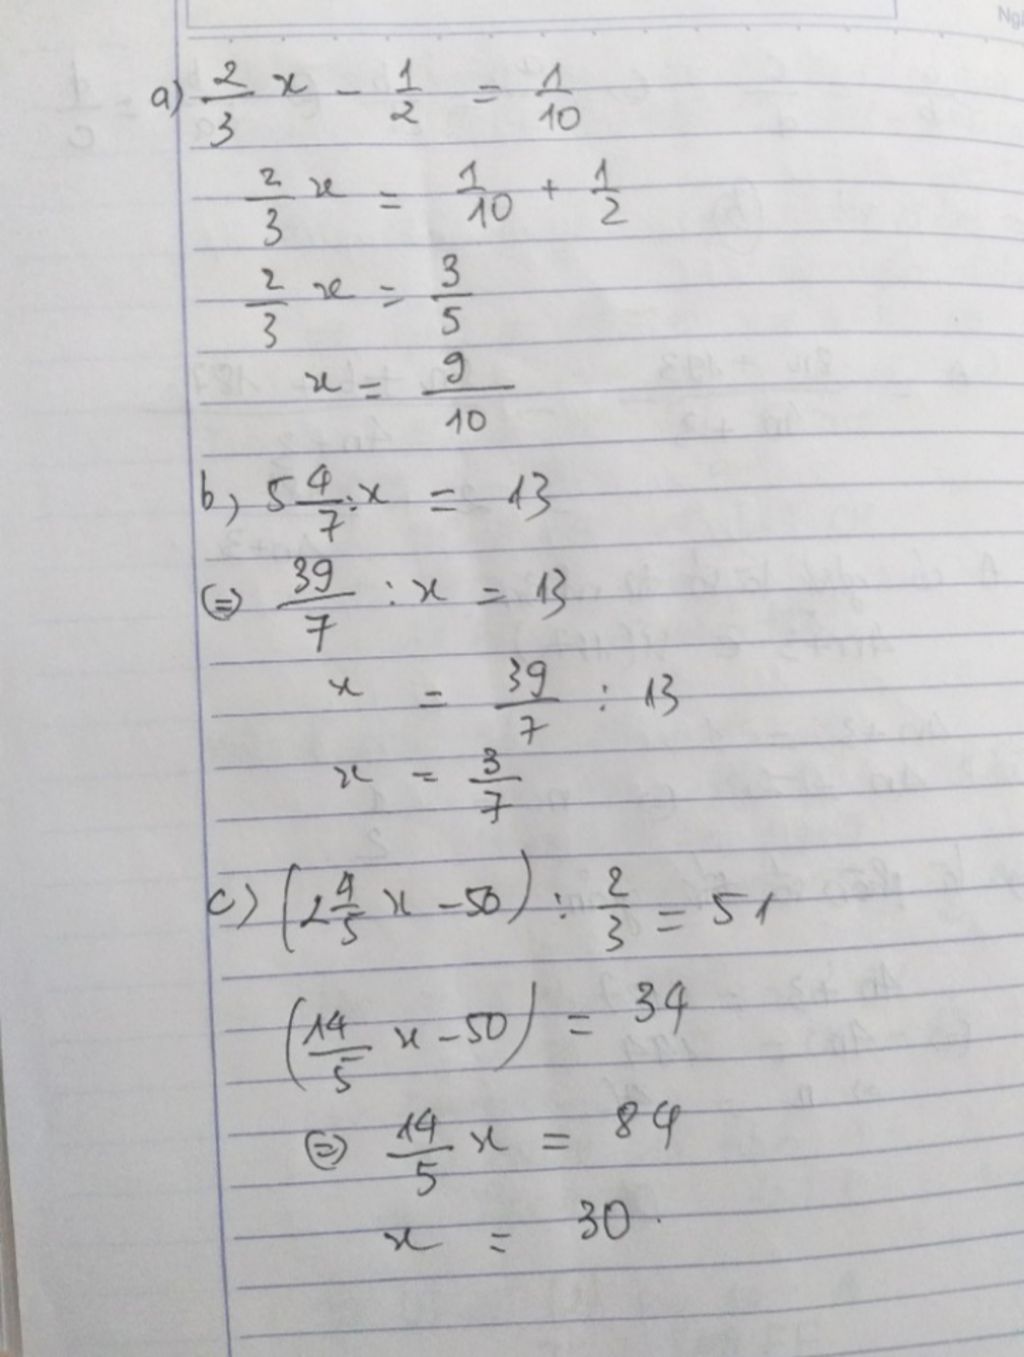 a) 2/3 x - 1/2 = 1/10
2/3 x = 1/10 + 1/2
2/3 x = 3/5
x = 9/10
b, 5 4/7 : x = 13
(=) 39/7 : x = 13
x = 39/7 : 13
x = 3/7
c) (2 4/5 x - 50) : 2/3 = 51
(14/5 x - 50) = 34
(=) 14/5 x = 84
x = 30.